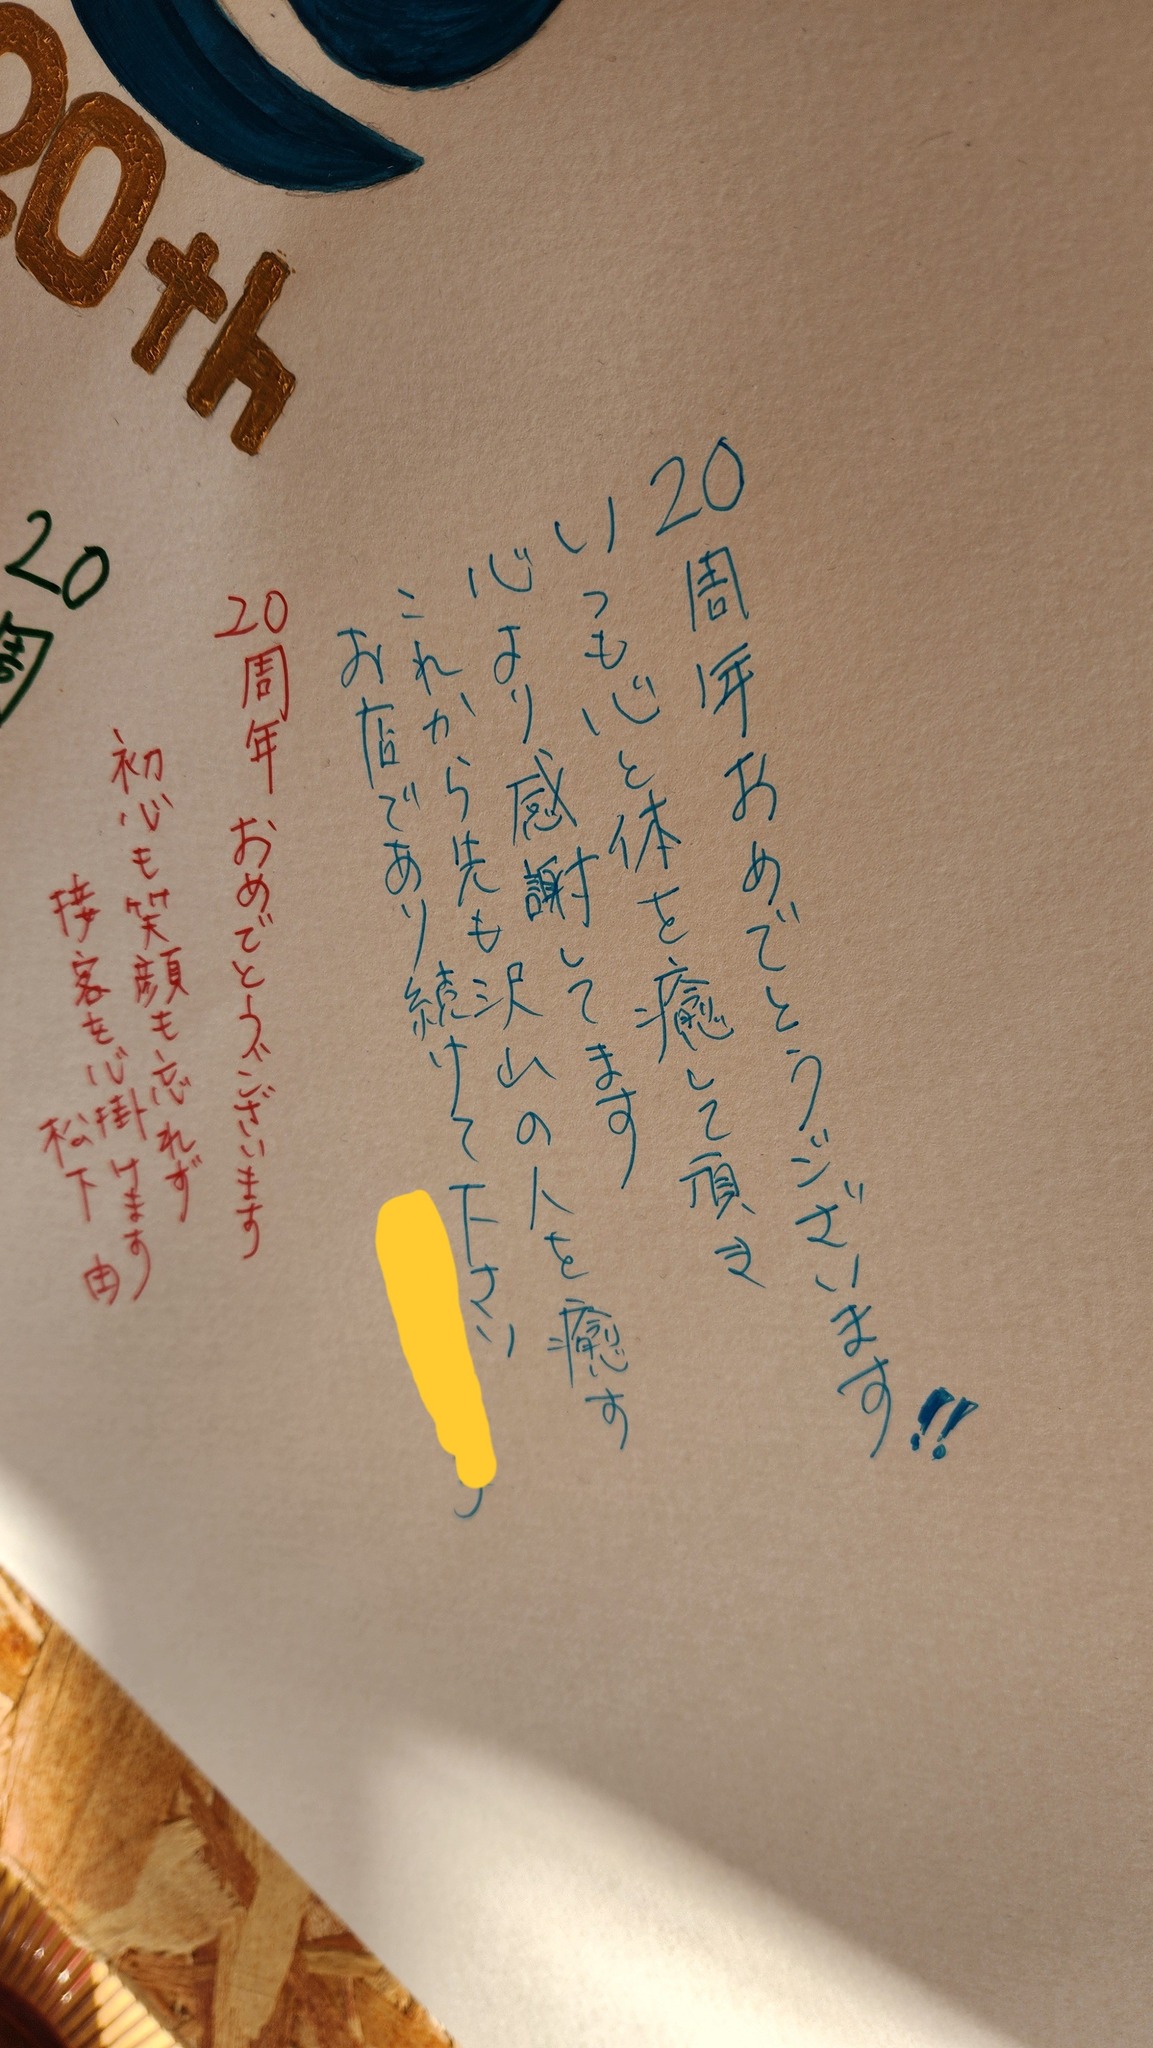 20th
20周年おめでとうございます!!
いつも心と体を癒して頂き
心より感謝してます
これから先も沢山の人を癒す
お店であり続けて下さい
20周年 おめでとうございます
初心も笑顔も忘れず
接客を心掛けます
松下 由
20周